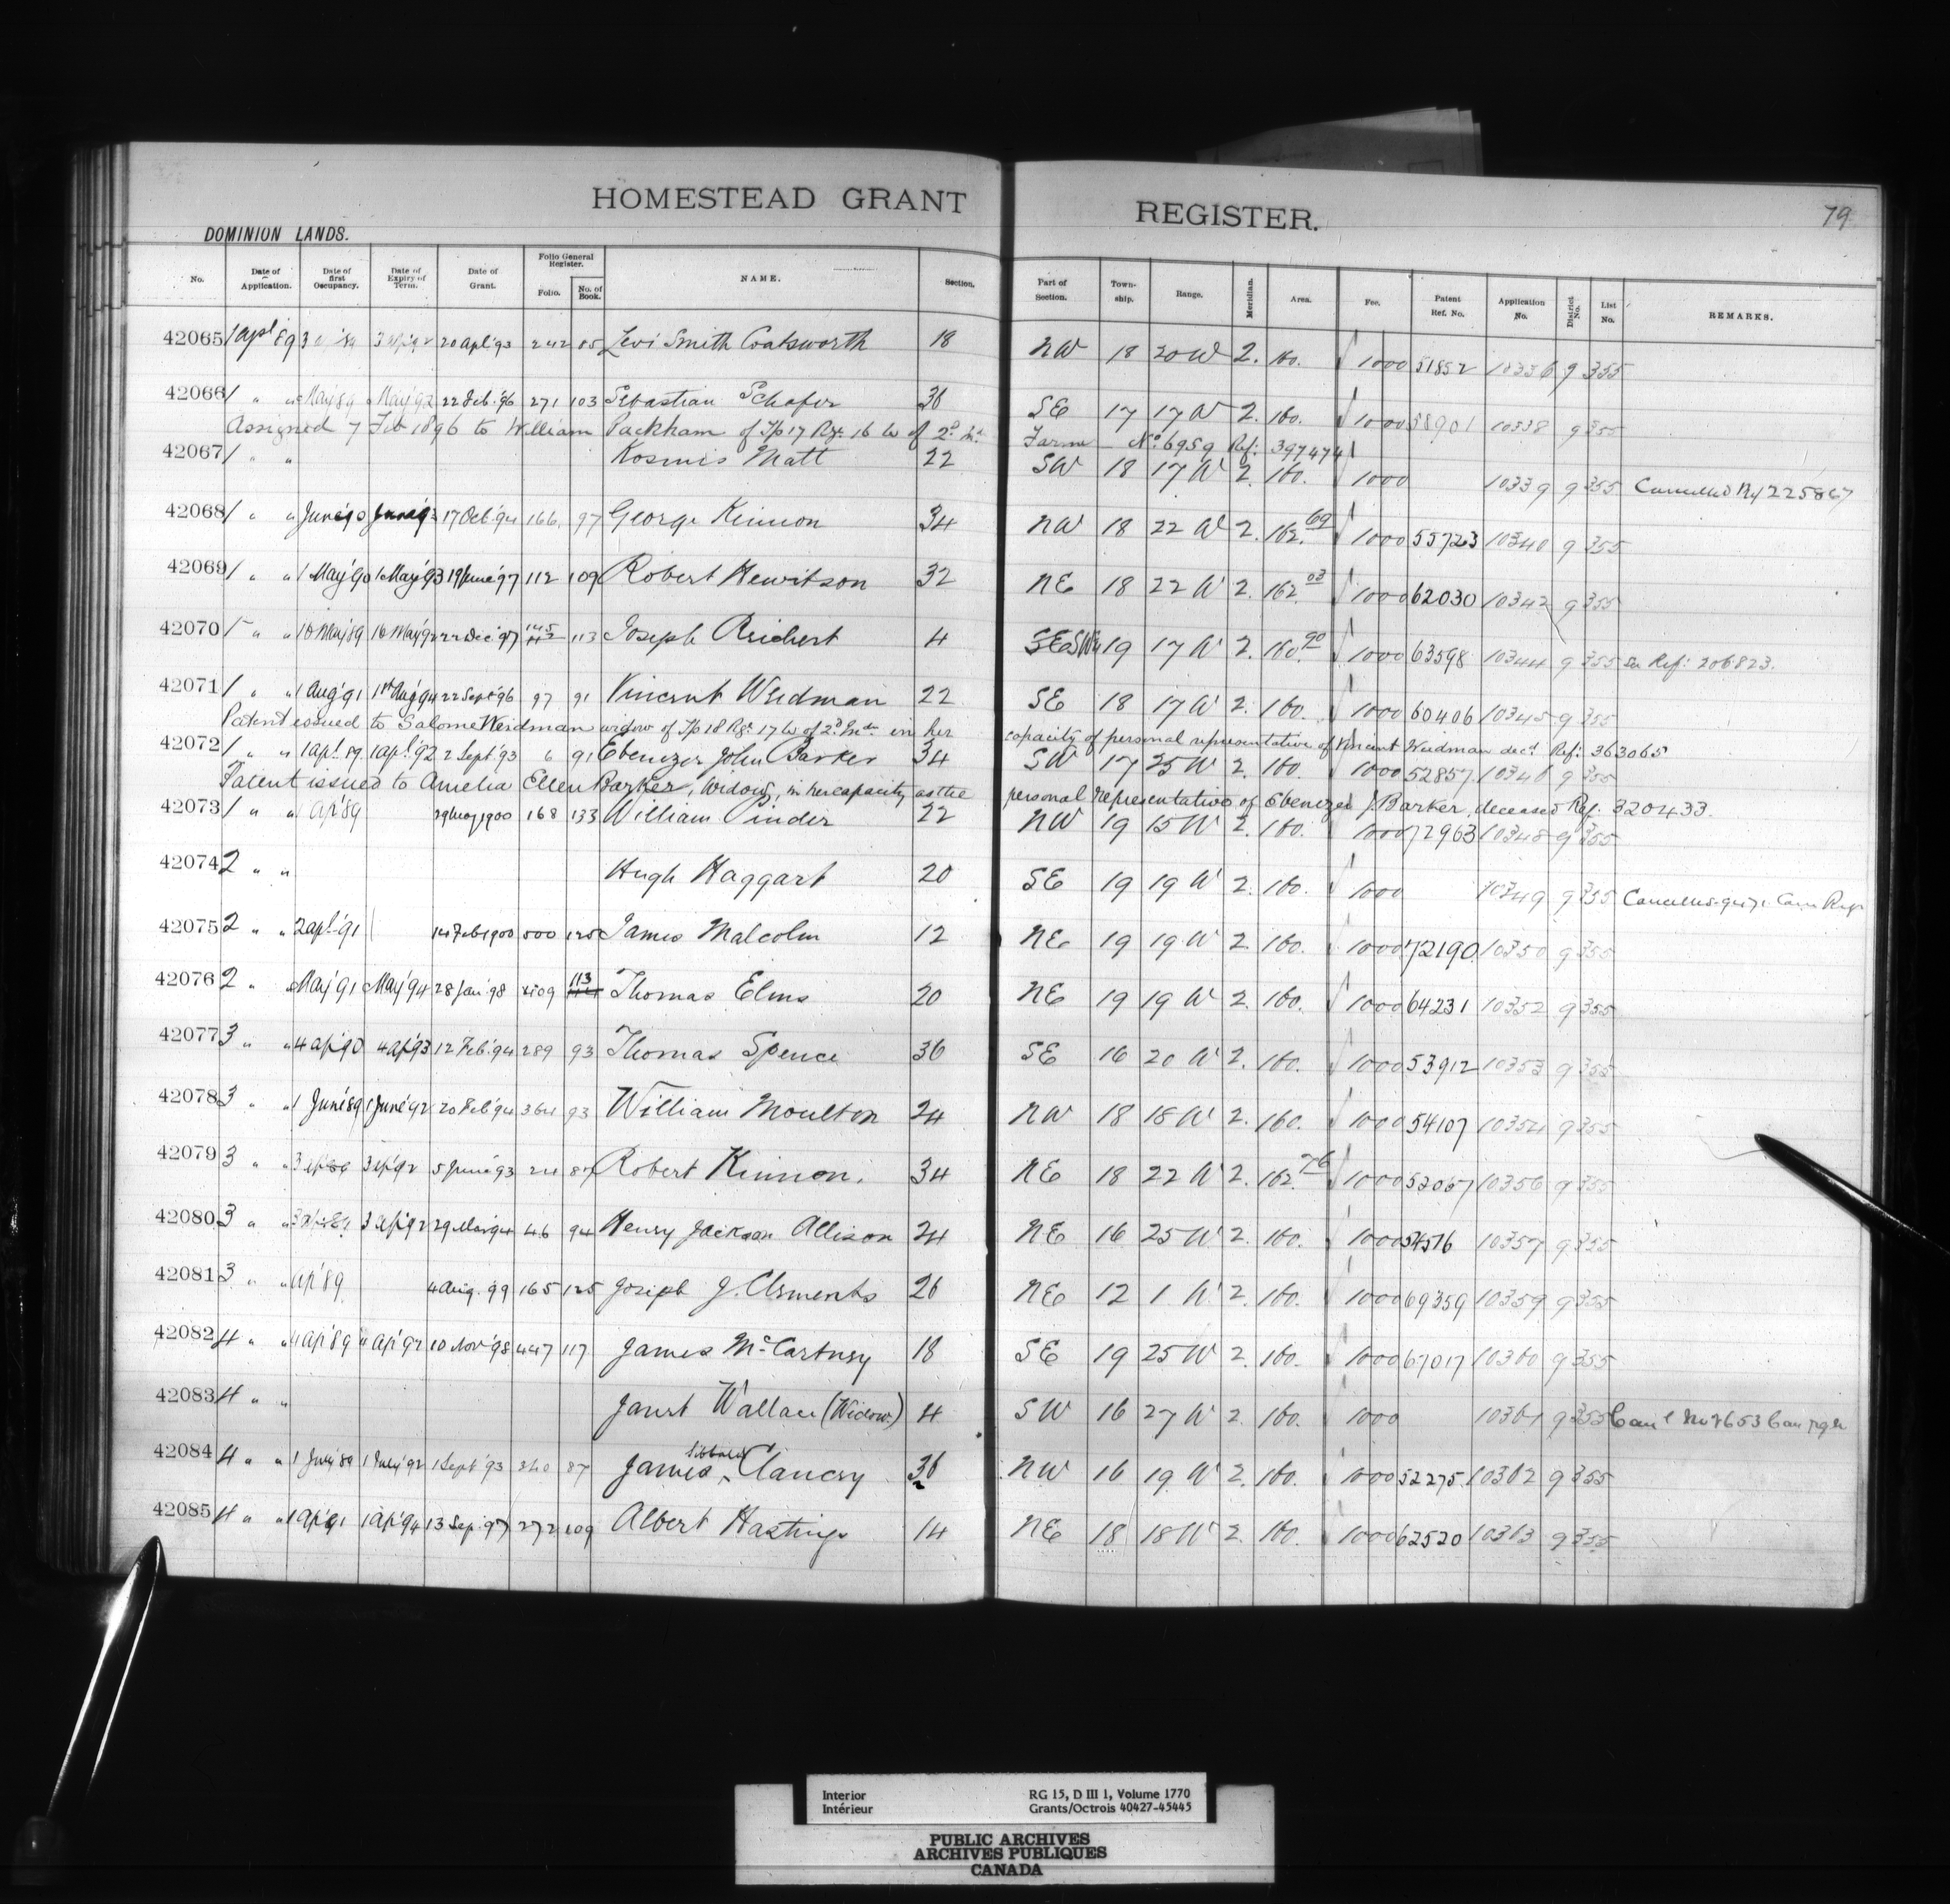 HOMESTEAD GRANT REGISTER.
79
DOMINION LANDS.
No. Date of Application. Date of first Occupancy. Date of Expiry of Term. Date of Grant. Folio General Register. Folio. No. of Book. NAME. Section. Part of Section. Township. Range. Meridian. Area. Fee. Patent Ref. No. Application No. District No. List No. REMARKS.
42065 1 apl '89 20 apl '93 242 85 Levi Smith Coatsworth 18 NW 18 20 W 2. 160. 1000 51852 10336 9 355
42066 1 " " May 89 May 92 22 Feb. '96 271 103 Sebastian Schafer 36 SE 17 17 W 2. 160. 1000 58901 10338 9 355
Assigned 7 Feb 1896 to William Packham of Tp 17 Rge 16 W of 2d Mn Farm No 6959 Ref: 397474
42067 1 " " Kosmis Matt 22 SW 18 17 W 2. 160. 1000 10339 9 355 Cancelled Ref 225867
42068 1 " " June '90 June '93 17 Oct. '94 166 97 George Kinnon 34 NW 18 22 W 2. 162.69 1000 55723 10340 9 355
42069 1 " " 1 May '90 1 May '93 19 June '97 112 109 Robert Hewitson 32 NE 18 22 W 2. 162.03 1000 62030 10342 9 355
42070 1 " " 10 May '89 10 May '92 22 Dec '97 145 113 Joseph Reichert 4 19 17 W 2. 160.90 1000 63598 10344 9 355 See Ref: 206823.
42071 1 " " 1 Aug '91 1st Aug '94 22 Sept '96 97 91 Vincent Weidman 22 SE 18 17 W 2. 160. 1000 60406 10345 9 355
Patent issued to Salome Weidman widow of Tp 18 Rge 17 W of 2d Mn in her capacity of personal representative of Vincent Weidman decd. Ref: 363065
42072 1 " " 1 apl. 89. 1 apl. '92 2 Sept '93 6 91 Ebenezer John Barker 34 SW 17 25 W 2. 160. 1000 52857 10346 9 355
Patent issued to Amelia Ellen Barker, Widow, in her capacity as the personal representative of Ebenezer J. Barker, deceased Ref. 320433.
42073 1 " " ap '89 29 May 1900 168 133 William Pinder 22 NW 19 15 W 2. 160. 1000 72963 10348 9 355
42074 2 " " Hugh Haggart 20 SE 19 19 W 2. 160. 1000 10349 9 355
42075 2 " " 2 apl. '91 14 Feb 1900 500 125 James Malcolm 12 NE 19 19 W 2. 160. 1000 72190 10350 9 355
42076 2 " " May '91 May '94 28 Jan '98 113 Thomas Elms 20 NE 19 19 W 2. 160. 1000 64231 10352 9 355
42077 3 " " 4 ap '90 4 ap '93 12 Feb. '94 289 93 Thomas Spence 36 SE 16 20 W 2. 160. 1000 53912 10353 9 355
42078 3 " " 1 June '89 1 June '92 20 Feb '94 364 93 William Moulton 24 NW 18 18 W 2. 160. 1000 54107 10354 9 355
42079 3 " " 3 ap '89 3 ap '92 5 June '93 24 87 Robert Kinnon. 34 NE 18 22 W 2. 162.76 1000 52067 10356 9 355
42080 3 " " 3 ap '89 3 ap '92 29 Mar '94 46 94 Henry Jackson Allison 24 NE 16 25 W 2. 160. 1000 54516 10357 9 355
42081 3 " " ap '89 4 Aug. 99 165 125 Joseph J. Clements 26 NE 12 1 W 2. 160. 1000 69359 10359 9 355
42082 4 " " 4 ap '89 4 ap '92 10 Nov '98 447 117 James McCartney 18 SE 19 25 W 2. 160. 1000 67017 10360 9 355
42083 4 " " Janet Wallace (Widow.) 4 SW 16 27 W 2. 160. 1000 10361 9 355
42084 4 " " 1 July 89 1 July '92 1 Sept '93 340 87 James Clancey 36 NW 16 19 W 2. 160. 1000 52275 10362 9 355
42085 4 " " 1 Ap '91 1 Ap '94 13 Sep. '97 272 109 Albert Hastings 14 NE 18 18 W 2. 160. 1000 62520 10363 9 355
Interior RG 15, D III 1, Volume 1770
Intérieur Grants/Octrois 40427-45445
PUBLIC ARCHIVES
ARCHIVES PUBLIQUES
CANADA